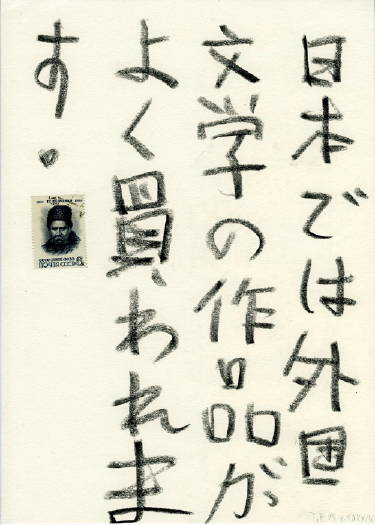 日本では外国
文学の作品が
よく買われま
す。